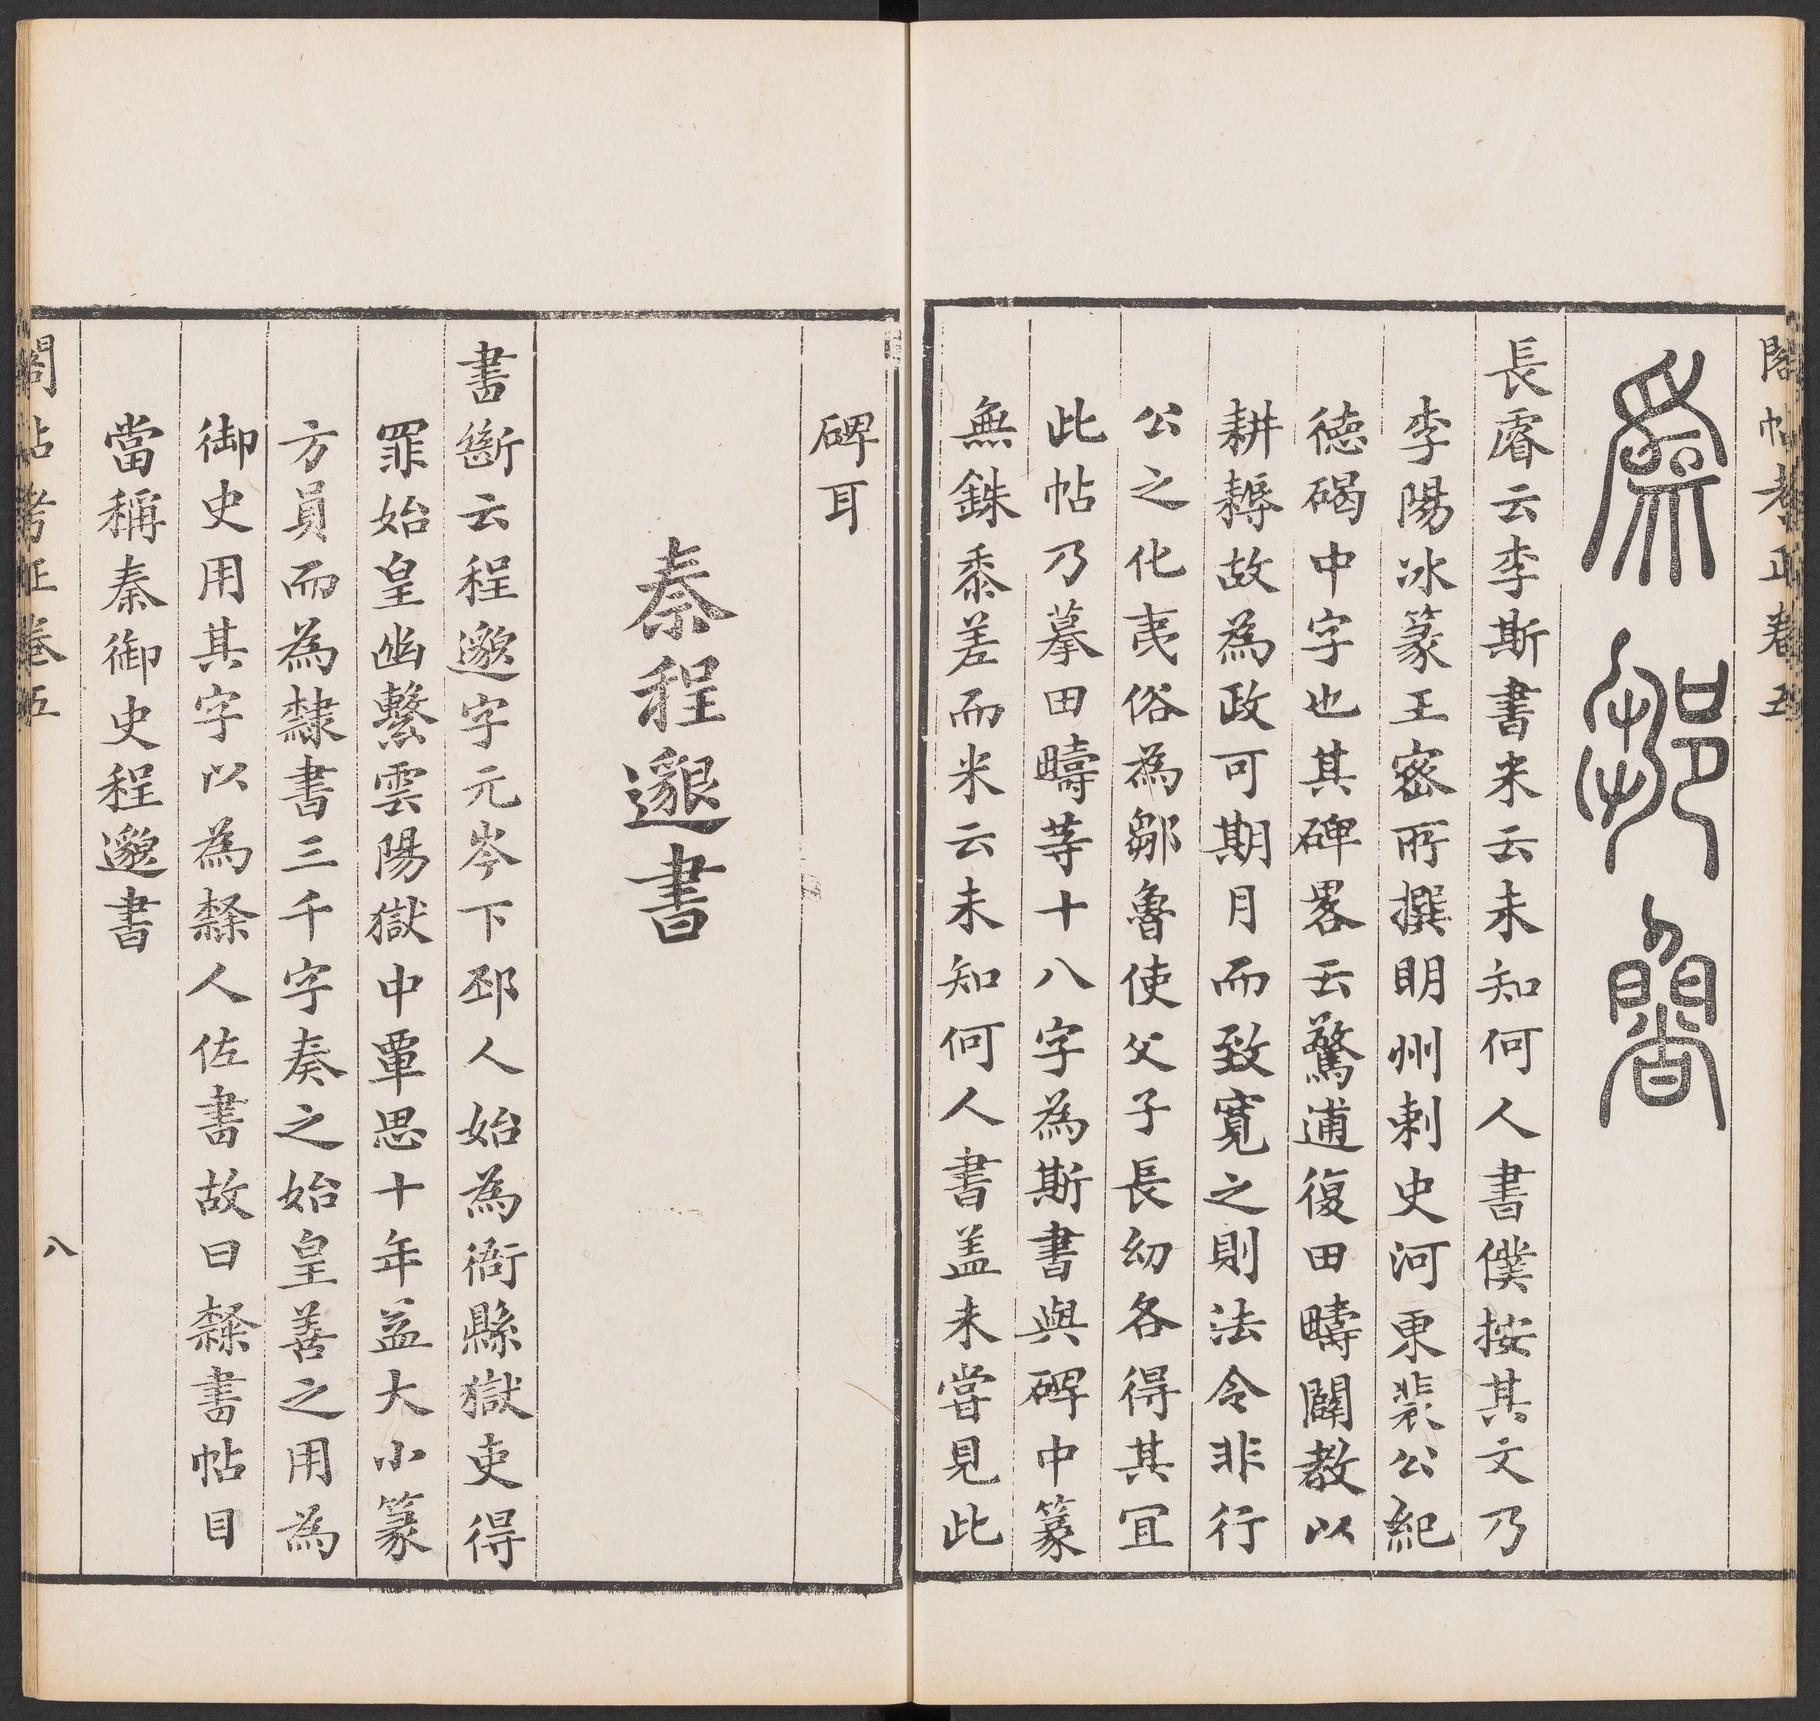 閣帖考正卷五
為鄒魯
長睿云李斯書米云未知何人書僕按其文乃
李陽冰篆王密所撰明州刺史河東裴公紀
德碣中字也其碑畧云驚逋復田疇闢教以
耕耨故為政可期月而致寬之則法令非行
公之化夷俗為鄒魯使父子長幼各得其宜
此帖乃摹田疇等十八字為斯書與碑中篆
無銖黍差而米云未知何人書盖未嘗見此
碑耳
秦程邈書
書斷云程邈字元岑下邳人始為衙縣獄吏得
罪始皇幽繫雲陽獄中覃思十年益大小篆
方員而為隸書三千字奏之始皇善之用為
御史用其字以為隸人佐書故曰隸書帖目
當稱秦御史程邈書
閣帖考正卷五
八